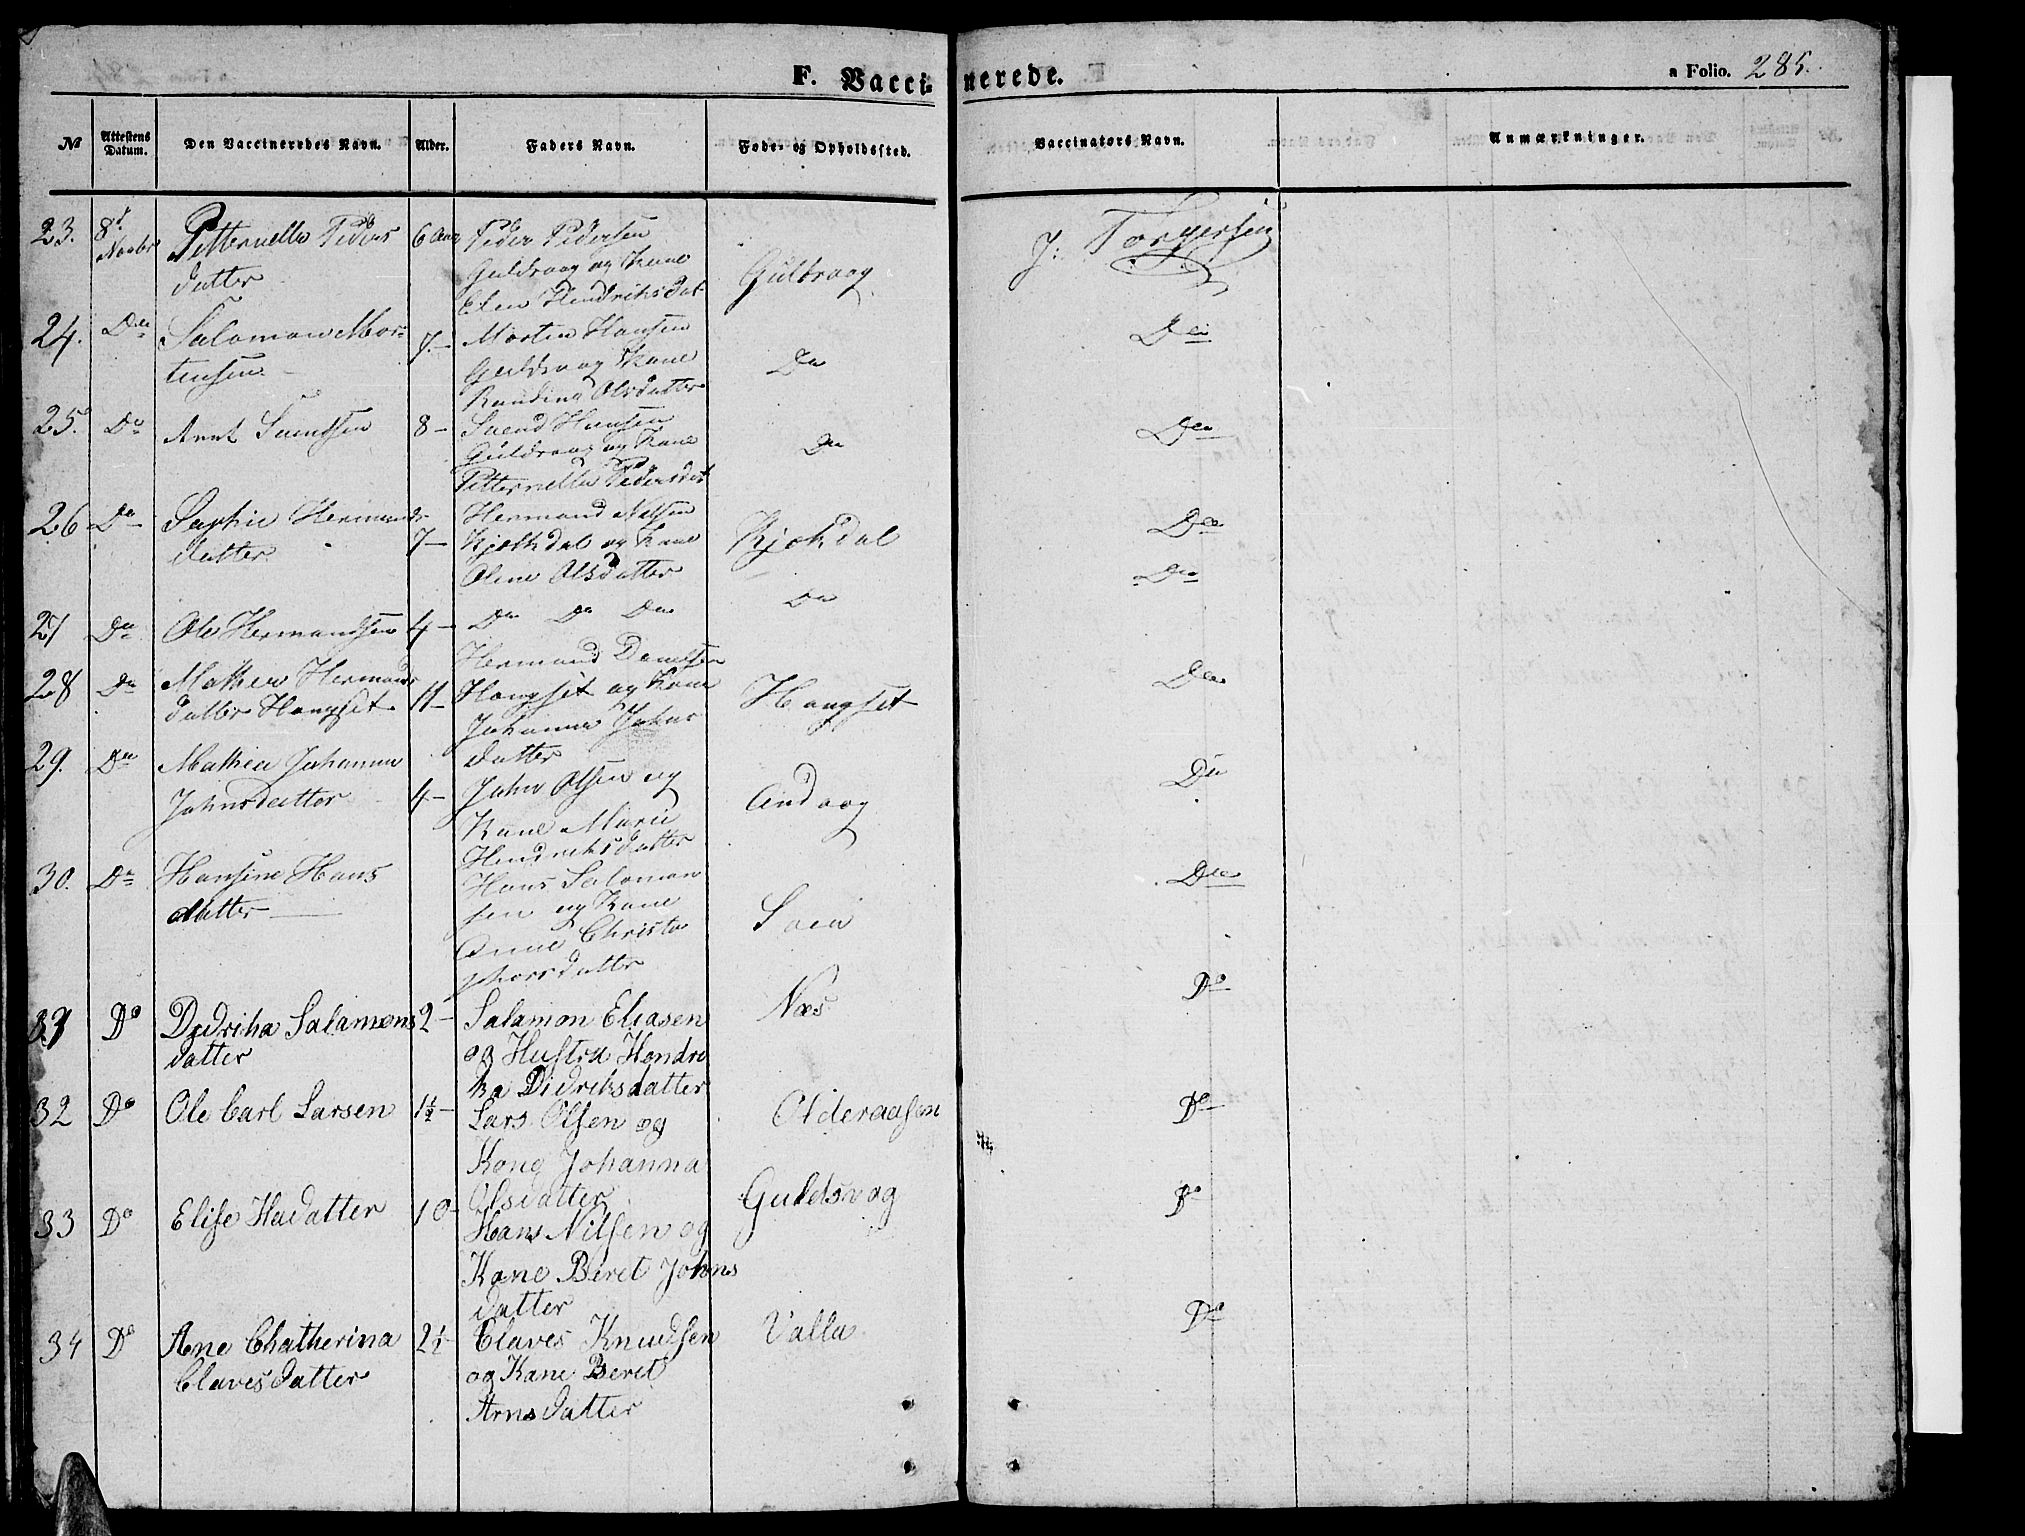 F. Vaccinerede.
a Folio. 285.
№ Attestens Datum. Den Vaccineredes Navn. Alder. Faders Navn. Føde- og Opholdssted. Vaccinators Navn. Anmærkninger.
23. 8d Novbr Petternelle Peders 6 Aar Peder Pedersen
datter Guldvaag og Kone Guldvaag J: Torgersen
Elen Hendriksdat
24. Do Salomon Mor- 7- Morten Hansen Do
tensen Guldvaag Kone Do
Olsdatter
25. Do Arnt Svendsen 8- Svend Hansen Do
Guldvaag og Kone Do
Petternelle Pedersdat
26 Do Sophie Hermands- Hermand Nilsen Do
datter 7- Kjøkdal og Kone Kjøkdal
Oline Olsdatter Do
27 Do Ole Hermandsen 4- Do Do Do Do
28 Do Mathea Hermands Hermand Do
datter Hongset 11- Hongset og Kone Hongset
Johanna Johns
datter
29. Do Mathea Johanna John Olsen og Do
Johnsdatter 4- Kone Marie Andaag
Hendriksdatter
30. Do Hansine Hans Hans Salomon Do
datter sen og Kone
Anne Christo
phersdatter
Do Dydriha Salamons 2- Salamon Eliasen Næs Do
datter og Hustru Hendri
ka Didriksdatter
32 Do Ole Carl Larsen 1½- Lars Olsen og Olderaasen Do
Kong Johanna
Olsdatter
33 Do Elise Hadatter 10- Hans Nilsen og Guldsvog Do
Kone Beret Johns
datter
34 Do Ane Chatherina 2½- Claves Knudsen Valla Do
Clavesdatter og Kane Beret
Arnsdatter